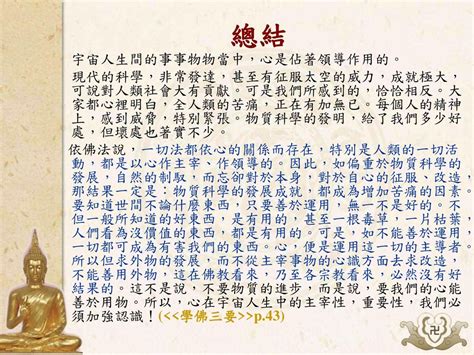 總結
宇宙人生間的事事物物當中，心是佔著領導作用的。
現代的科學，非常發達，甚至有征服太空的威力，成就極大，
可說對人類社會大有貢獻。可是我們所感到的，恰恰相反。大
家都心裡明白，全人類的苦痛，正在有加無已。每個人的精神
上，感到威脅，特別緊張。物質科學的發明，給了我們多少好
處，但壞處也著實不少。
依佛法說，一切法都依心的關係而存在，特別是人類的一切活
動，都是以心作主宰、作領導的。因此，如偏重於物質科學的
發展，自然的制馭，而忘卻對於本身，對於自心的征服、改造，
那結果一定是：物質科學的發展成就，都成為增加苦痛的因素。
要知道世間不論什麼東西，只要善於運用，無一不是好的。不
但一般所知道的好東西，是有用的，甚至一根毒草，一片枯葉，
人們看為沒價值的東西，都是有用的。可是，如不能善於運用，
一切都可成為有害我們的東西。心，便是運用這一切的主導者，
所以但求外物的發展，而不從主宰事物的心識方面去求改造，
不能善用外物，這在佛教看來，乃至各宗教看來，必然沒有好
結果的。這不是說，不要物質的進步，而是說，要我們的心能
善於用物。所以，心在宇宙人生中的主宰性，重要性，我們必
須加強認識！(<<學佛三要>>p.43)
卍